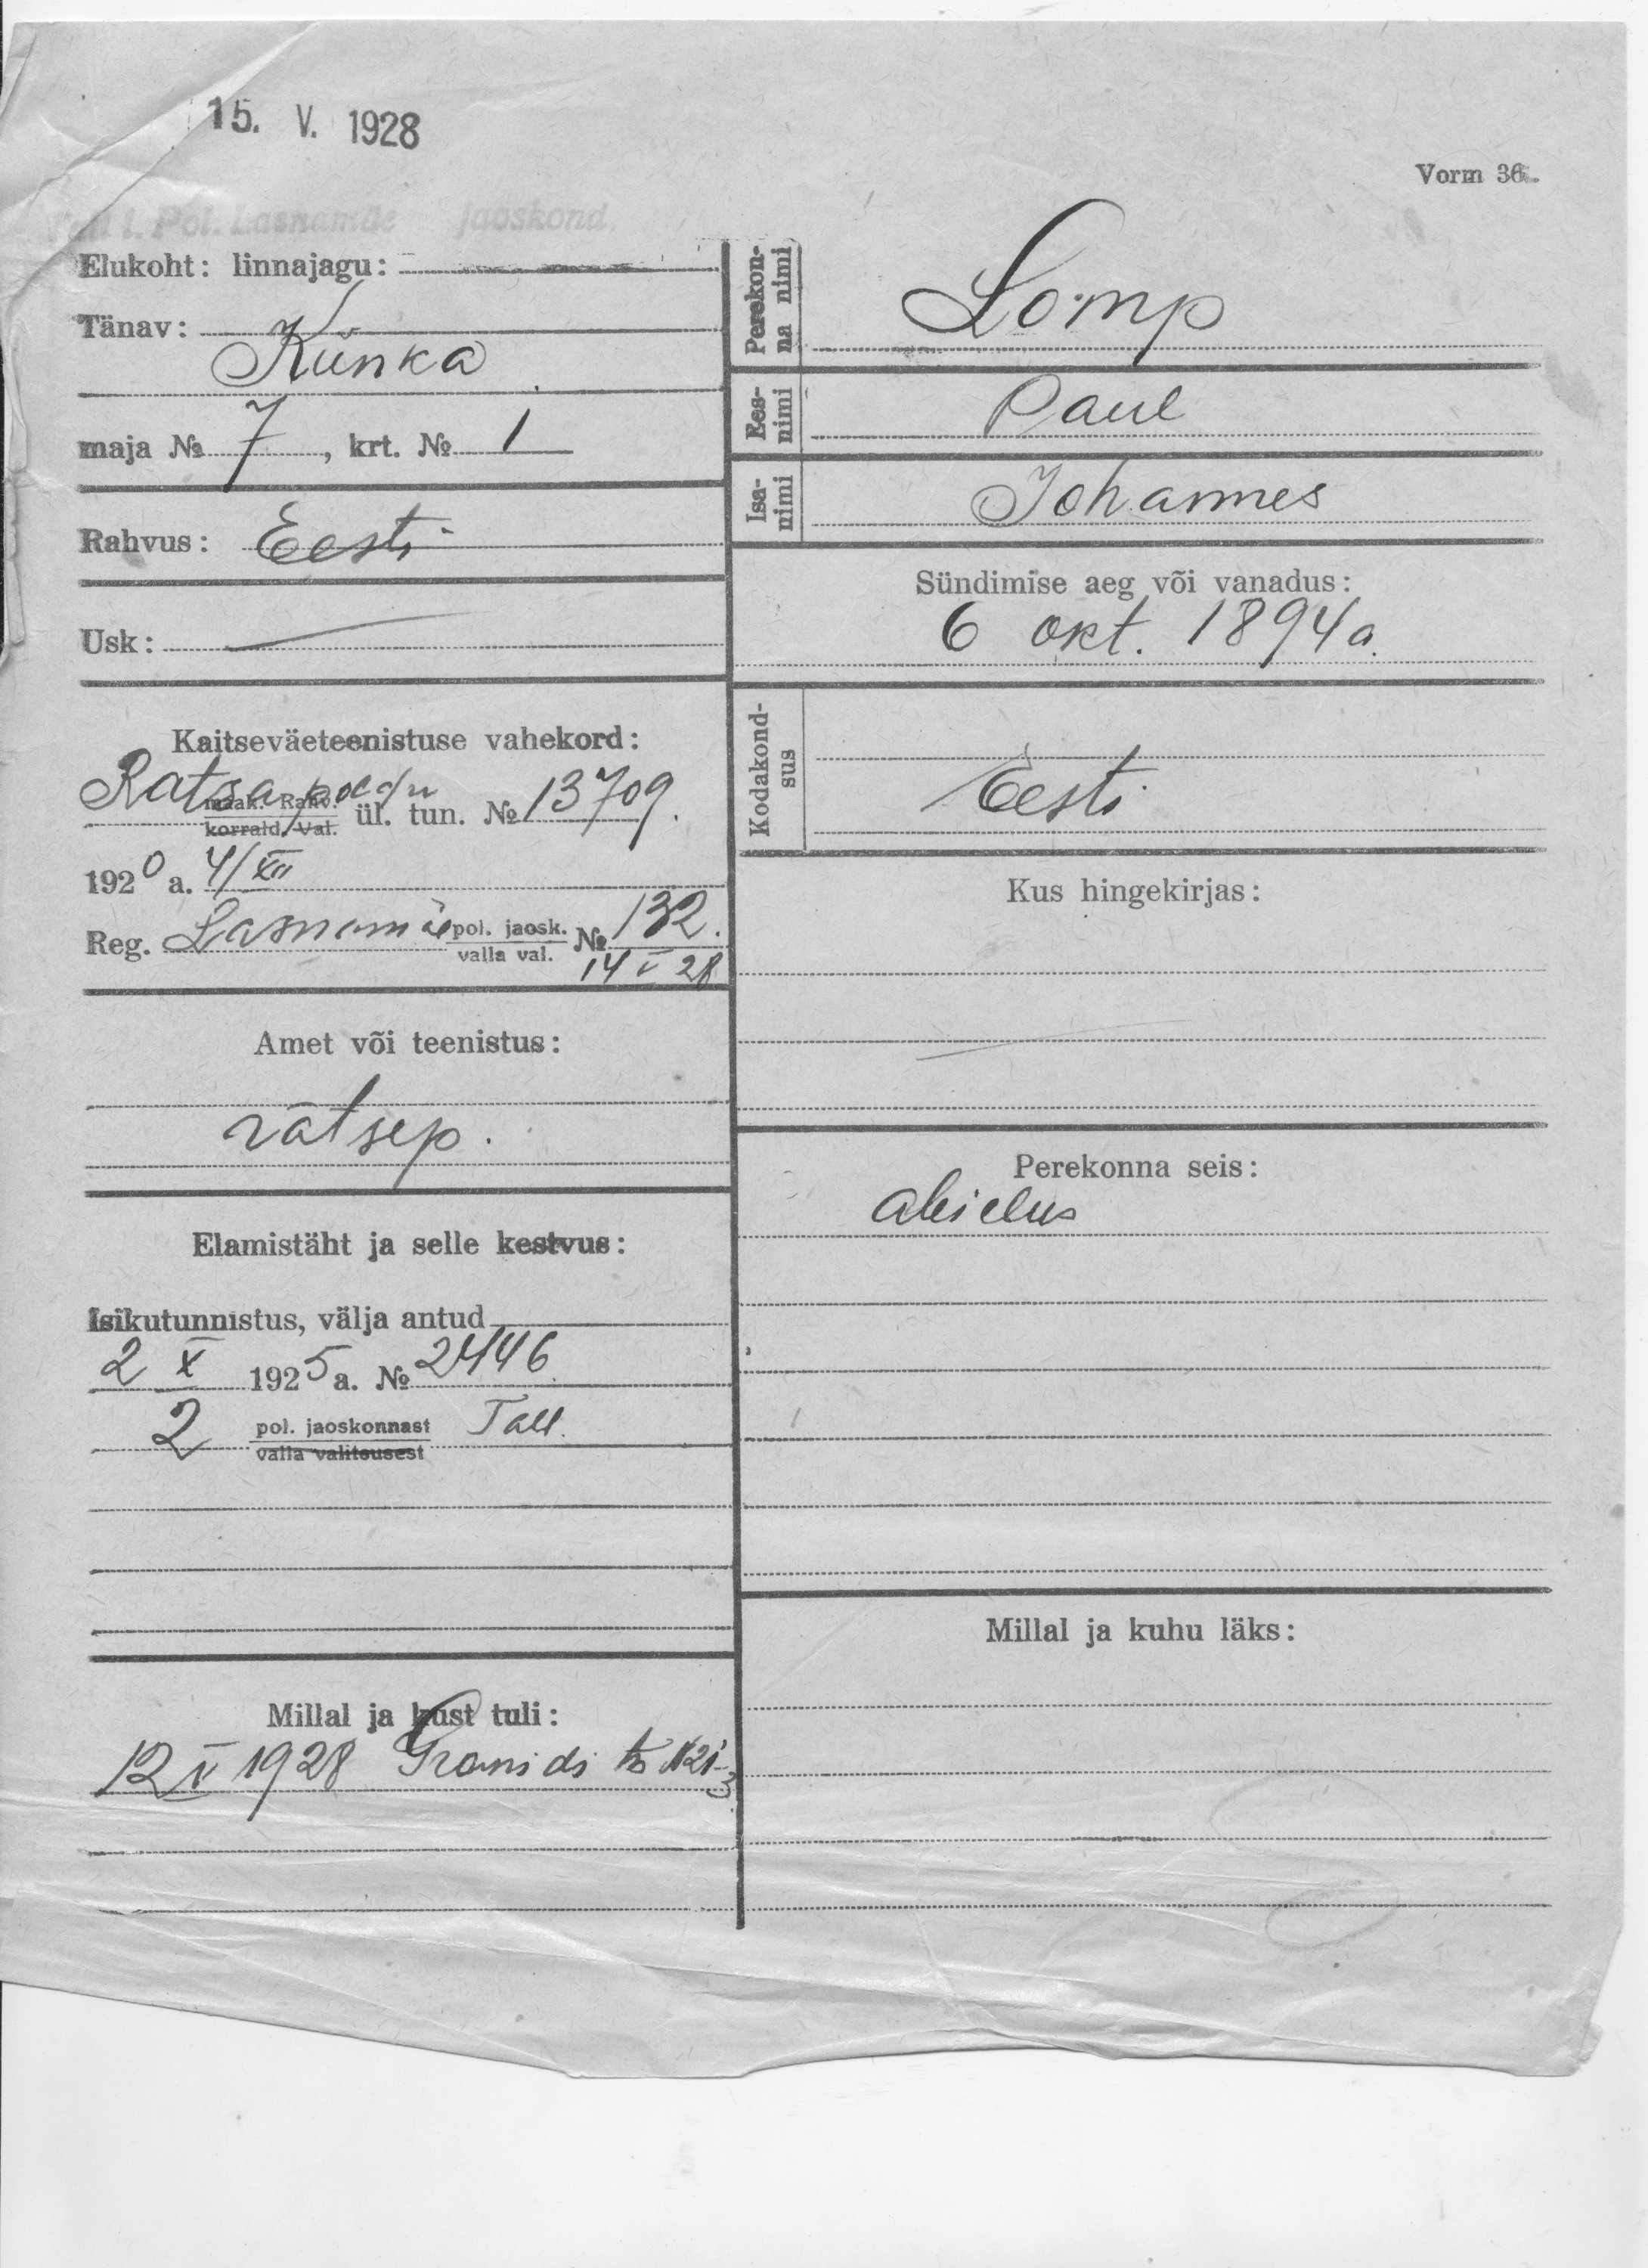 15. V. 1928
Vorm 36.
Tall l. Pol. Lasnamäe jaoskond.
Elukoht: linnajagu:
Tänav:
Künka
maja № 7, krt. № 1
Rahvus: Eesti
Usk:
Kaitseväeteenistuse vahekord:
Ratsa
maak. Rahv.
korrald. Val.
ül. tun. № 13709.
1920 a. 4/XII
Reg. Lasnamäe pol. jaosk. № 132.
valla val.
14 V 28
Amet või teenistus:
rätsep.
Elamistäht ja selle kestvus:
Isikutunnistus, välja antud
2 X 1925 a. № 2446
2 pol. jaoskonnast Tall.
valla valitsusest
Millal ja kust tuli:
12 V 1928
Perekon-
na nimi
Lomp
Ees-
nimi
Paul
Isa-
nimi
Johannes
Sündimise aeg või vanadus:
6 okt. 1894 a.
Kodakond-
sus
Eesti
Kus hingekirjas:
Perekonna seis:
abielus
Millal ja kuhu läks: